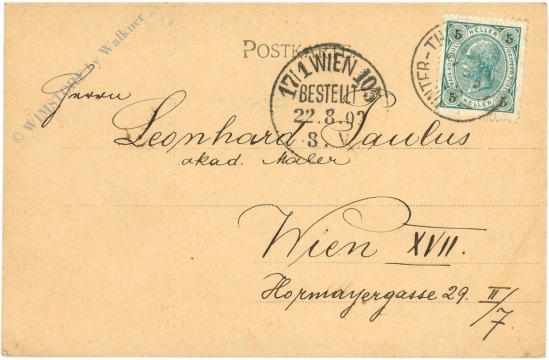 POSTKARTE
© WIMSTORY by Walkner
5 HELLER 5
5 HELLER 5
17/1 WIEN 105
BESTELLT
22.8.
8. V
Herrn
Leonhard Paulus
akad. Maler
Wien XVII.
Hormayergasse 29. II/7.